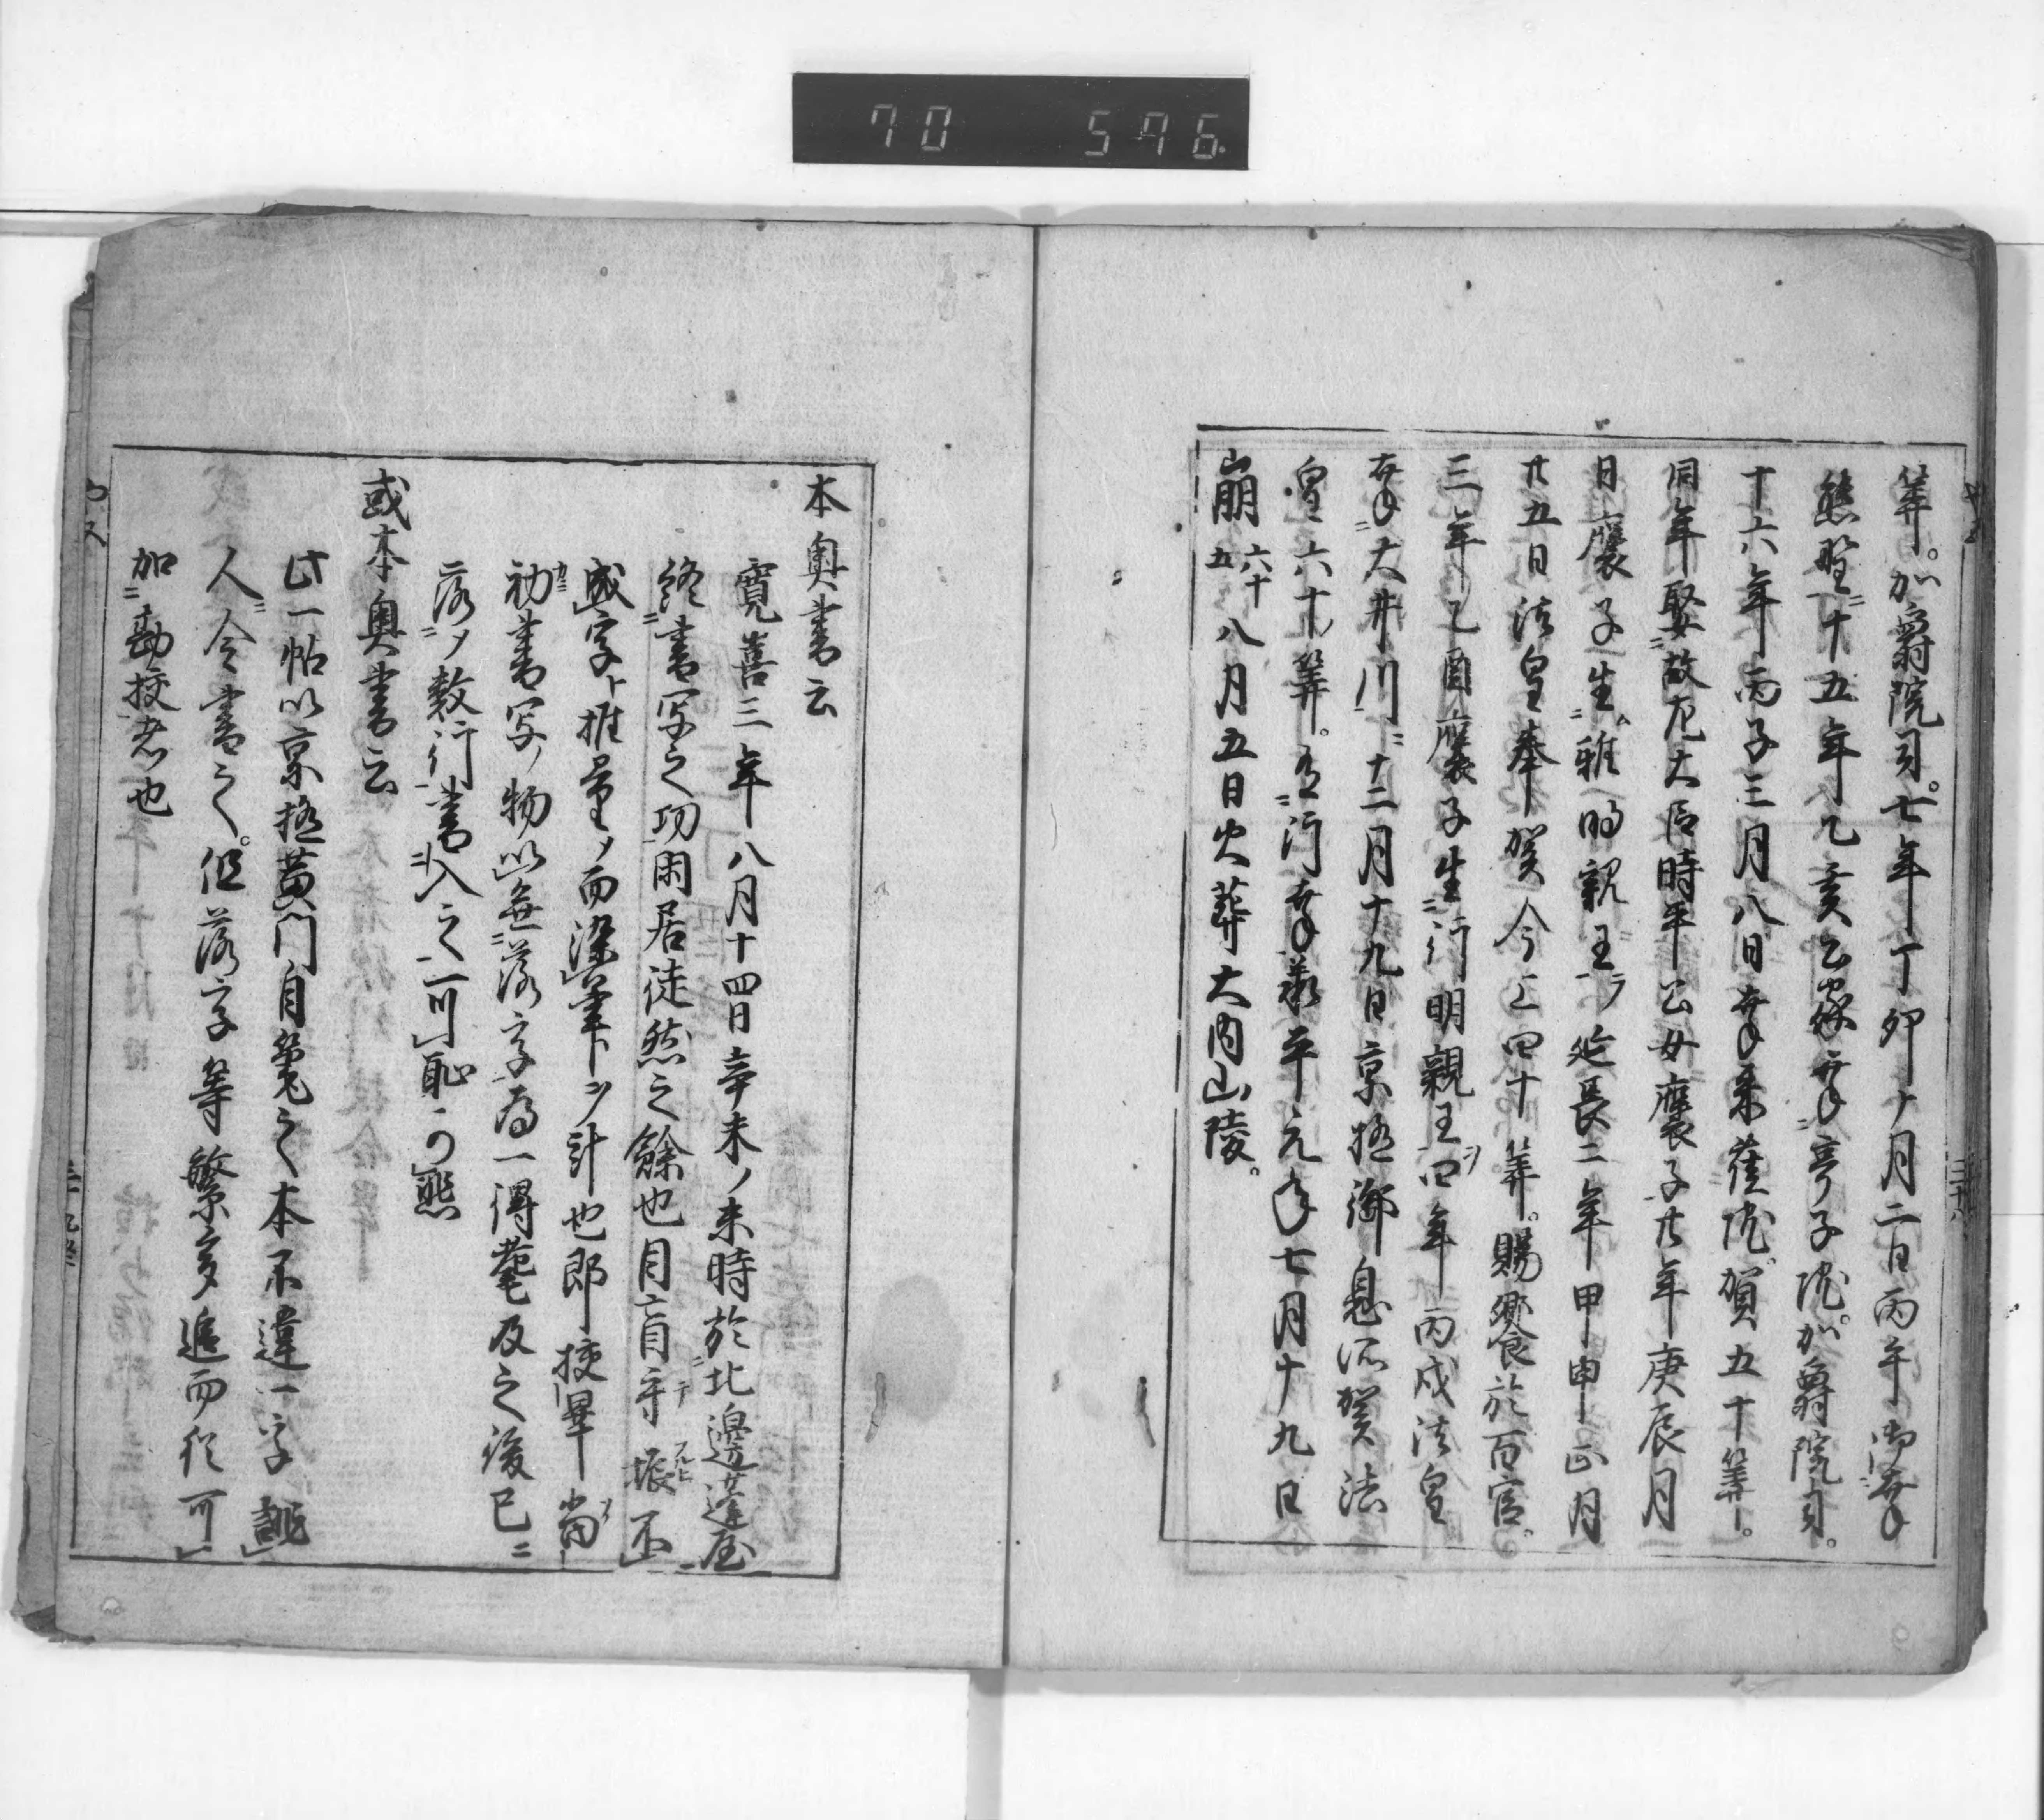 70 576
筭。加爵院司。七年丁卯十月二日丙午御幸
熊野ニ十五年乙亥公家幸亭子院。加爵院司。
十六年丙子三月八日幸朱雀院。賀五十筭。
同年娶故左大臣時平公女褒子廿年庚辰月
日褒子生雅明親王ヲ延長二年甲申正月
廿五日法皇奉賀今上四十筭。賜饗食於百官。
三年乙酉褒子生行明親王ヲ四年丙戌法皇
幸大井川ニ十二月十九日京極御息所賀法
皇六十筭。有行幸承平元年七月十九日
崩六十五八月五日火葬大内山陵。
本奥書云
寛喜三年八月十四日辛未ノ未時於北邊蓬屋
終書写之功閑居徒然之餘也目盲手振不
成字ト推量ノ而染筆ヲ計也即挍畢尚
初書写ノ物以無落字為一得耄及之後已ニ
落ノ數行書入之可恥可
或本奥書云
此一帖以京極黄門自筆之本不違一字誂
人令書之。但落字等繁多追而従可
加勘挍者也